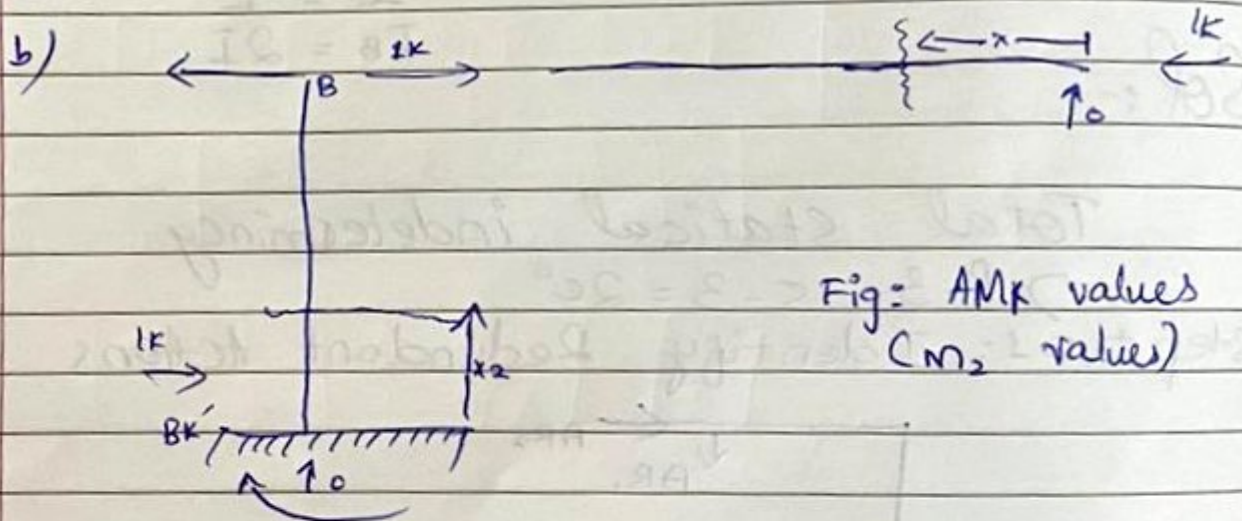 b)
1K
B
x
1K
0
1K
x2
BK'
0
Fig: AMK values
(m2 values)